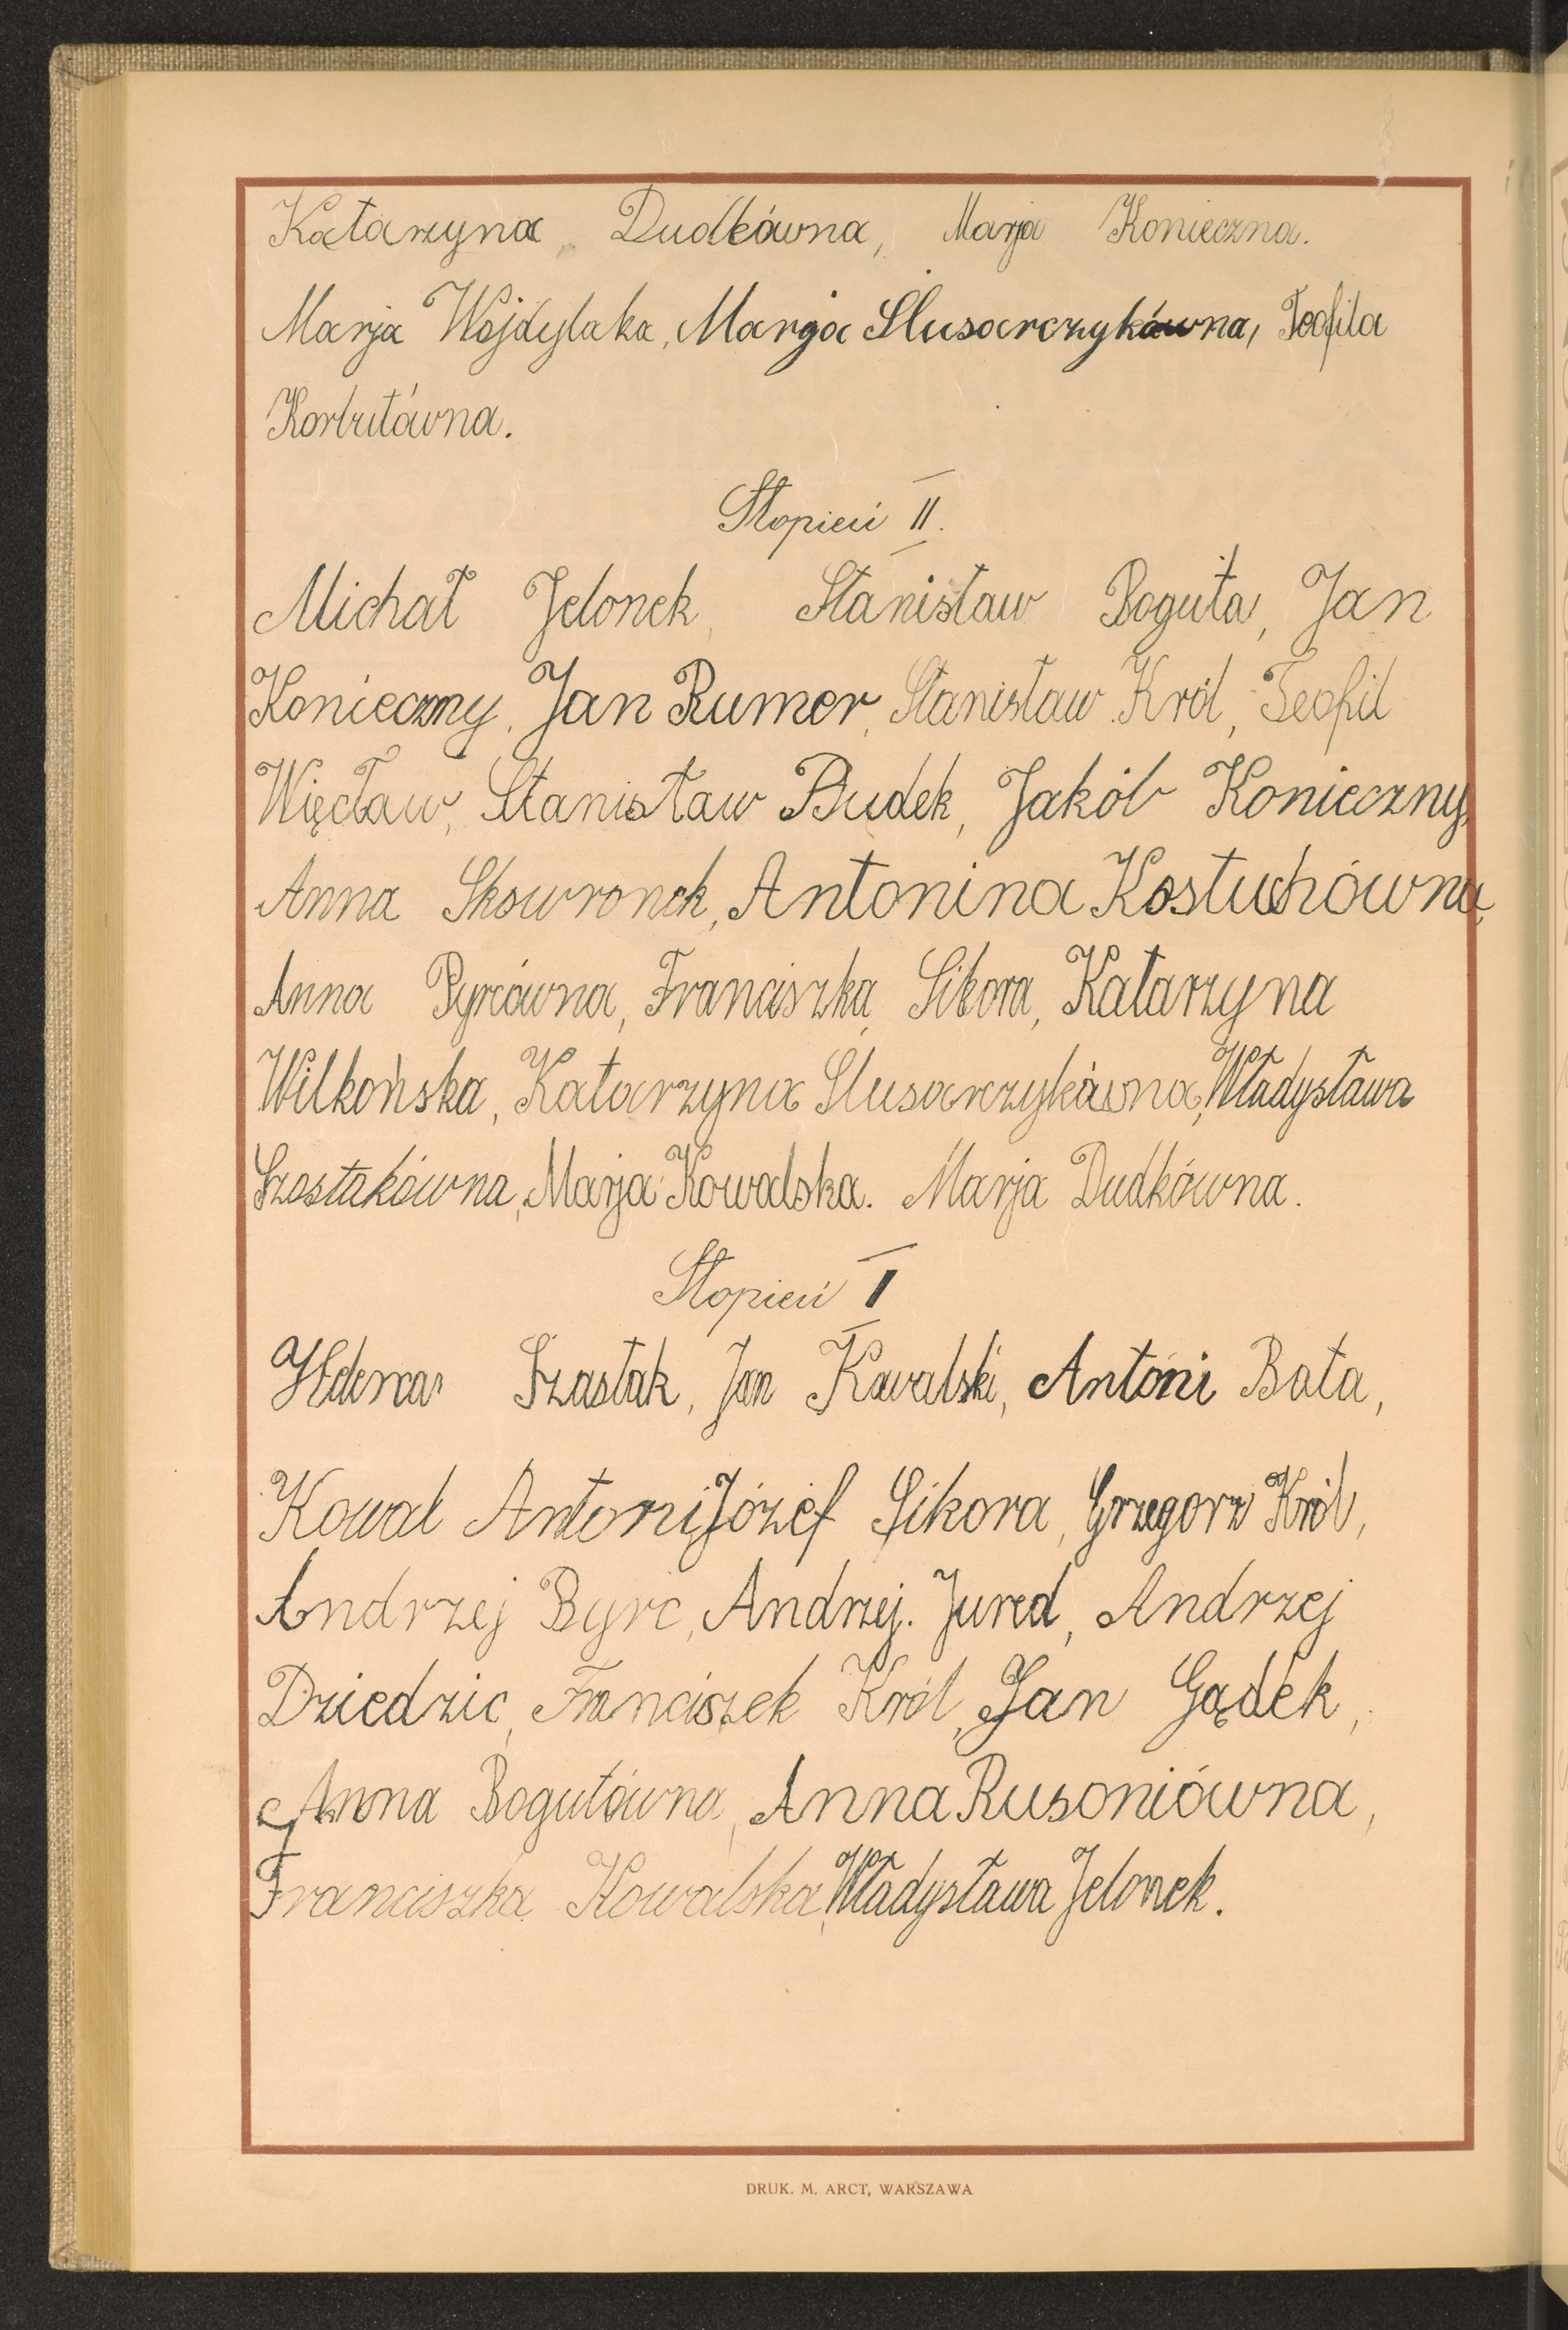 Katarzyna Dudkówna, Marja Konieczna.
Marja Wojdylaka, Marja Slusarczykówna, Teofila
Korbutówna.
Stopień II.
Michał Jelonek, Stanisław Boguta, Jan
Konieczny, Jan Rumer, Stanisław Król, Teofil
Więcław, Stanisław Dudek, Jakób Konieczny,
Anna Skowronek, Antonina Kostuchówna,
Anna Pyrcówna, Franciszka Sikora, Katarzyna
Wilkońska, Katarzyna Slusarczykówna, Władysława
Szostakówna, Marja Kowalska. Marja Dudkówna.
Stopień I
Szastak, Jan Kowalski, Antoni Bata,
Kowal Antoni, Józef Sikora, Grzegorz Król,
Andrzej Byrc, Andrzej. Jured, Andrzej
Dziedzic, Franciszek Król, Jan Gądek,
Anna Bogutówna, Anna Rusoniówna,
Franciszka Kowalska, Władysława Jelonek.
DRUK. M. ARCT, WARSZAWA